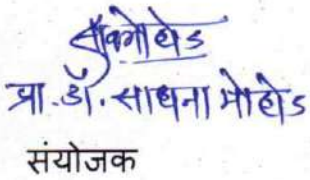 प्रा. डॉ. साधना मोहोड
संयोजक